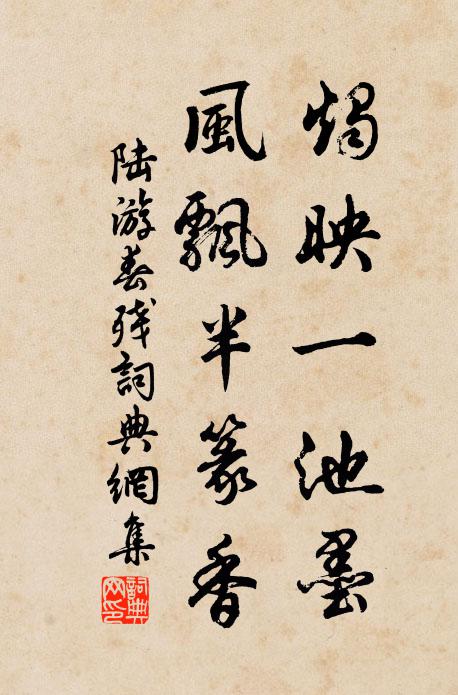 燭映一池墨
風飄半篆香
陸游春殘詞典網集
詞典網印